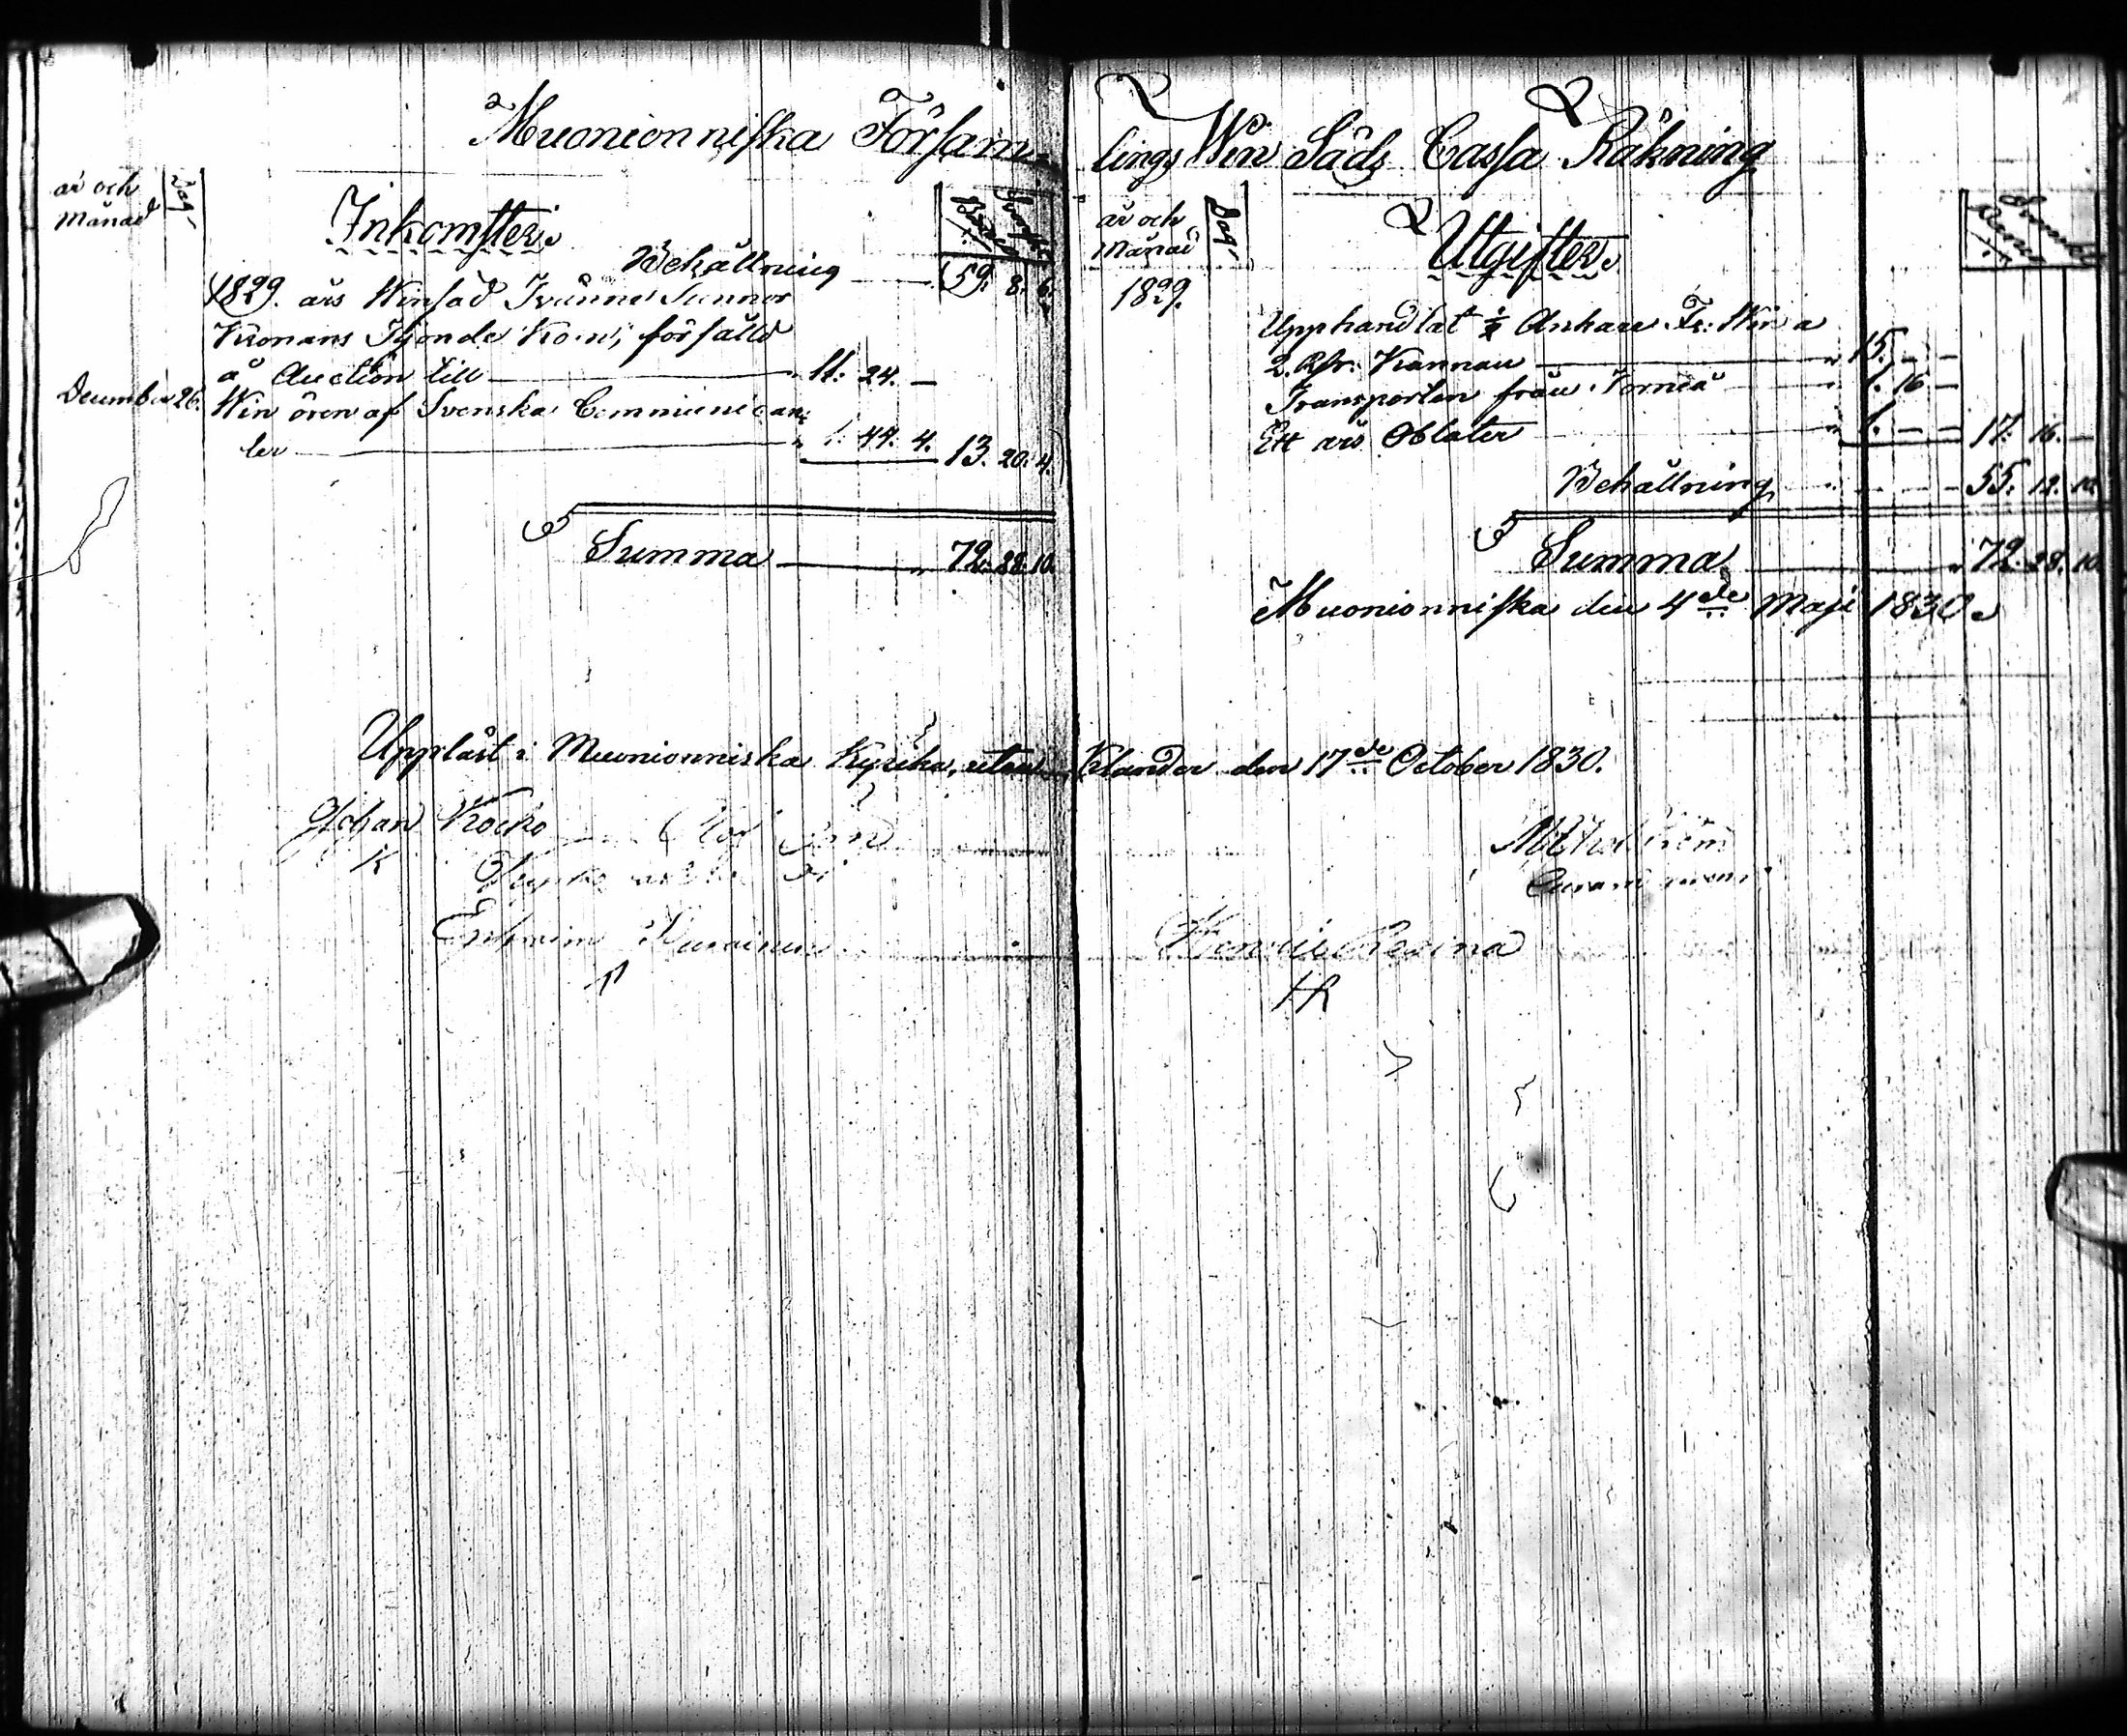 Muonionniska Församlings Win Säds Cassa Räkning
år och Månad
Dag
Inkomster.
Svenska Banco
Behållning 59. 8. 6.
1829. års Winsäd Tvänne Tunnor
Kronans Tijonde Korn, försåld
å Auction till 11. 24. —
December 26. Win ören af Svenska Communican-
ter 1. 44. 4. 13. 20. 4.
Summa 72. 28. 10.
år och Månad
Dag
Utgifter.
Svenskt Banco
1829.
Upphandlat ½ Ankare Fr: Win a
2. Rdr. Kannan 15. — —
Transporten från Torneå 1. 16 —
Ett års Oblater 1. — — 17. 16. —
Behållning 55. 12. 10.
Summa 72. 28. 10.
Muonionniska den 4de Maji 1830.
Uppläst i Muonionniska Kyrka, utan Klander den 17de October 1830.
Johan Kocko
K
Ephraim
Henric Revina
HR